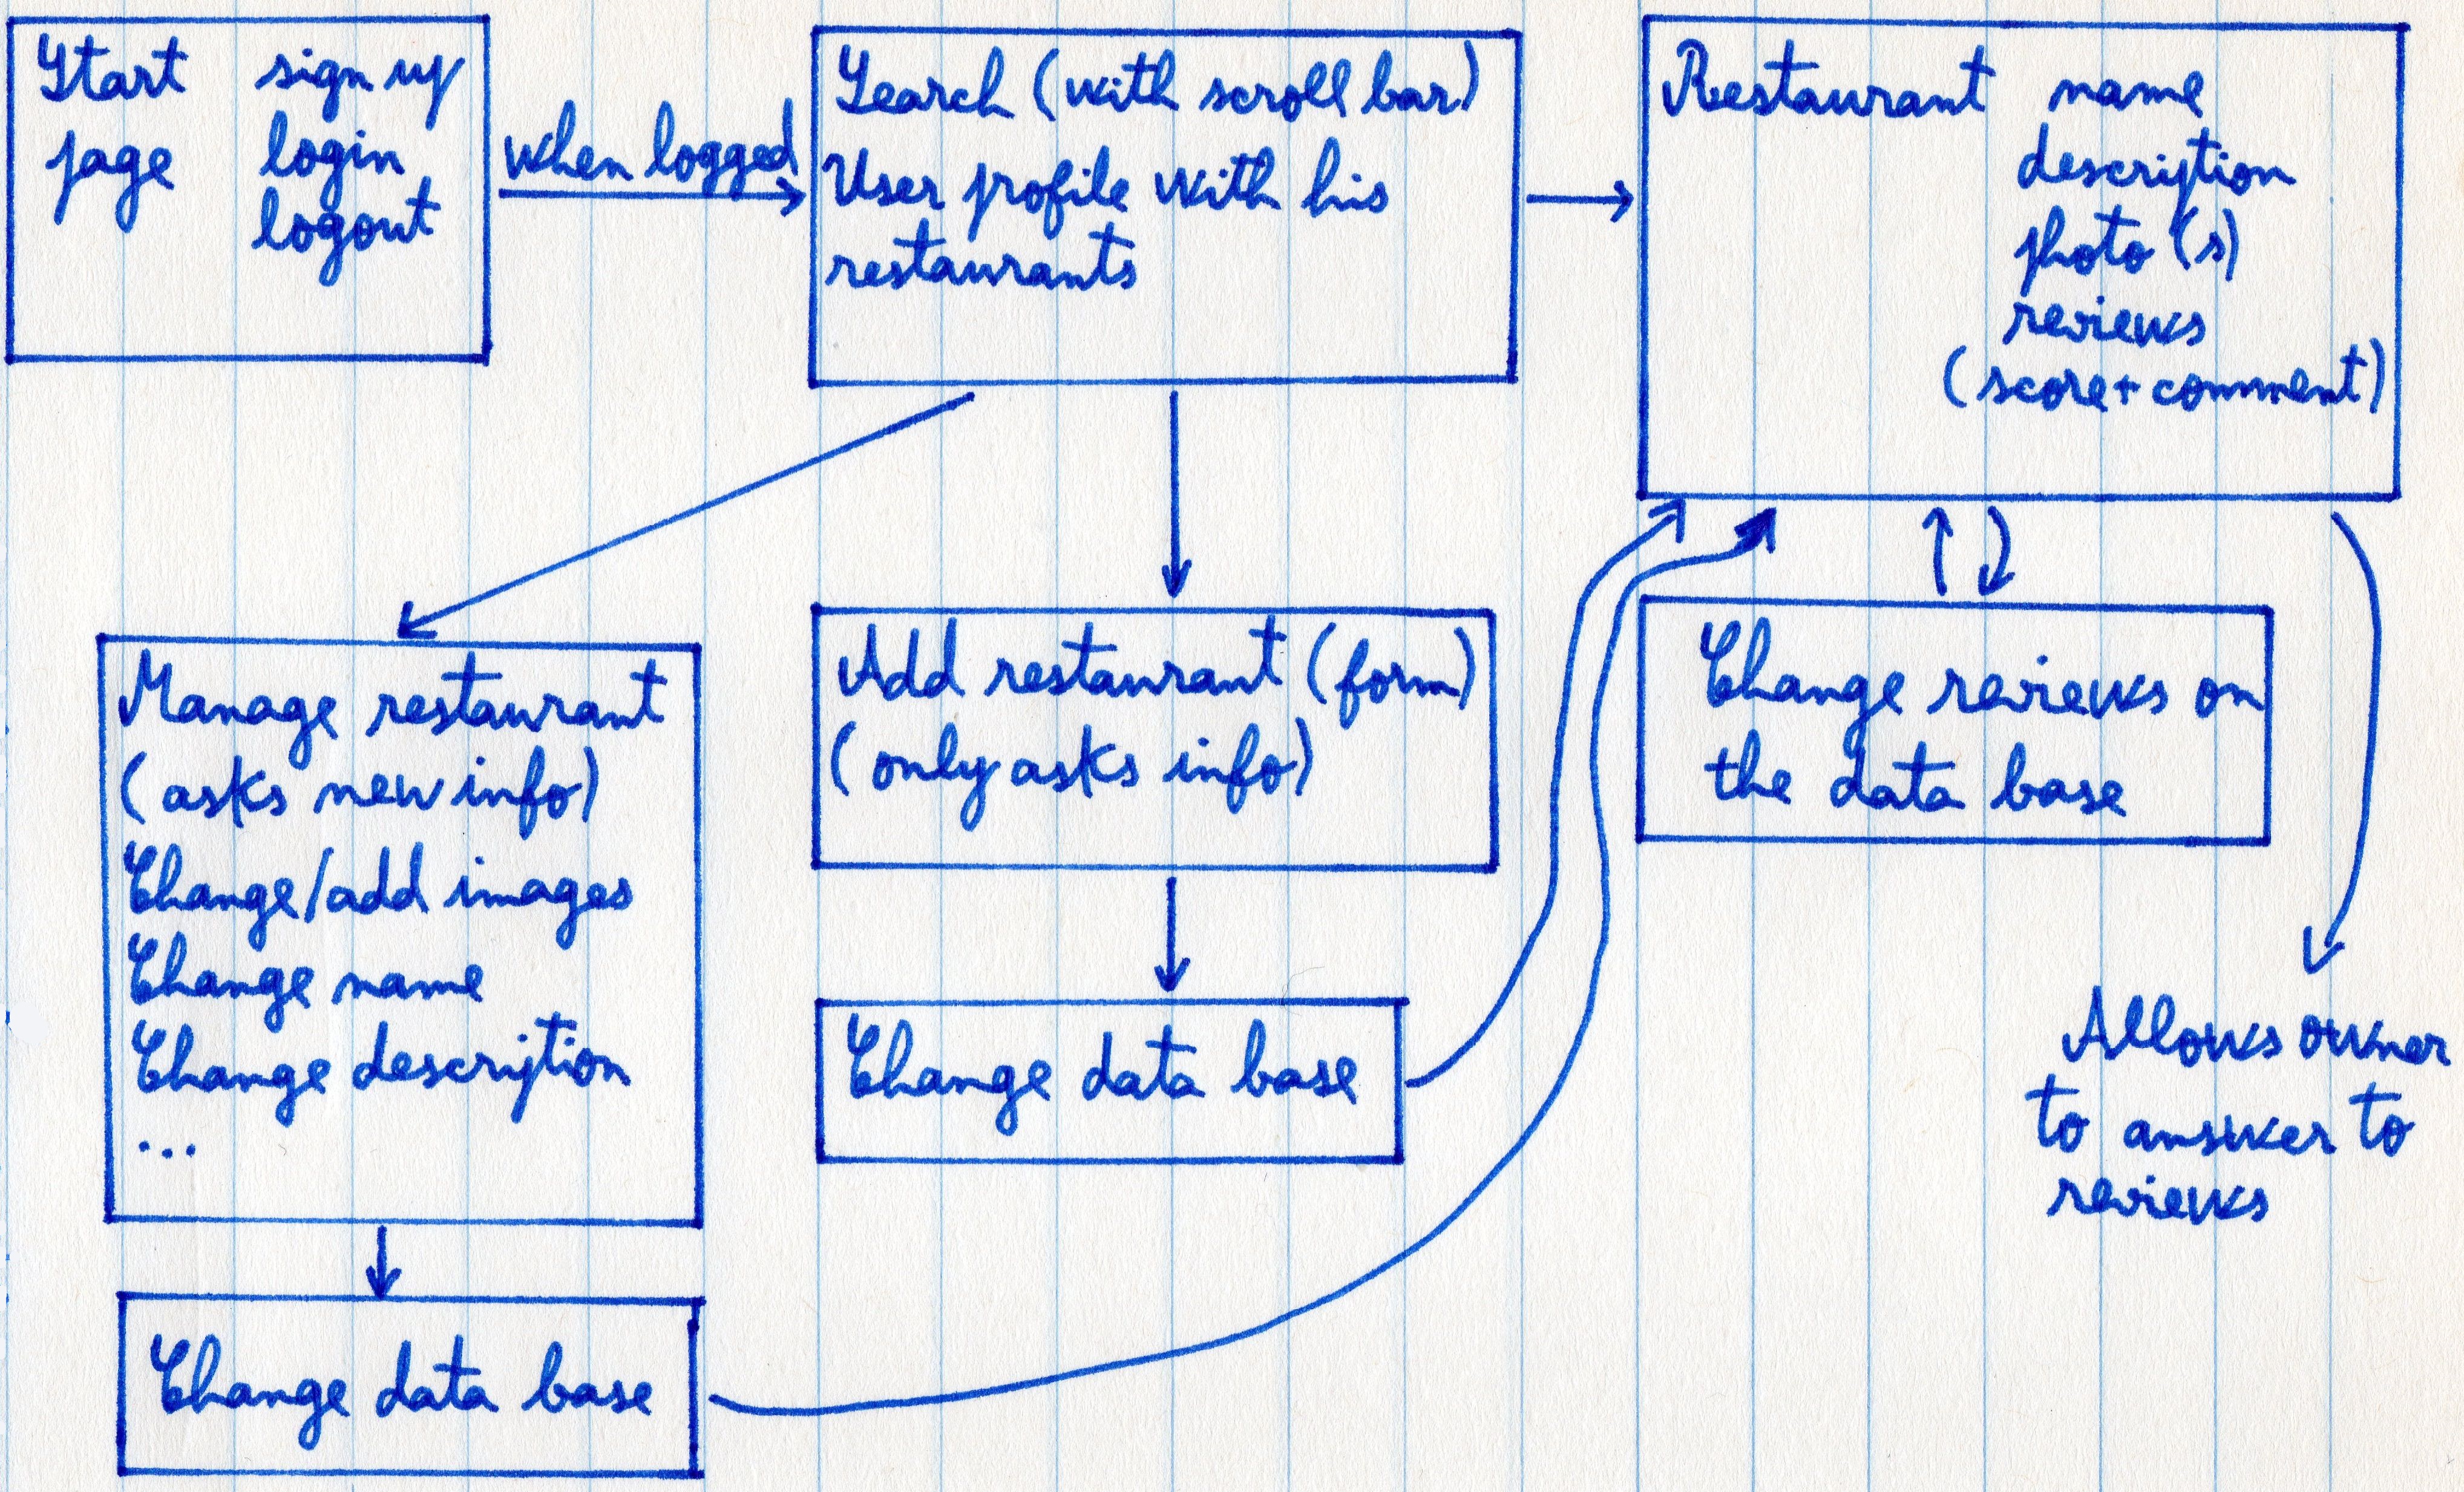 Start sign up
page login
logout
when logged
Search (with scroll bar)
User profile with his
restaurants
Restaurant name
description
photo (s)
reviews
(score + comment)
Manage restaurant
(asks new info)
Change/add images
Change name
Change description
...
Change data base
Add restaurant (form)
(only asks info)
Change data base
Change reviews on
the data base
Allows owner
to answer to
reviews